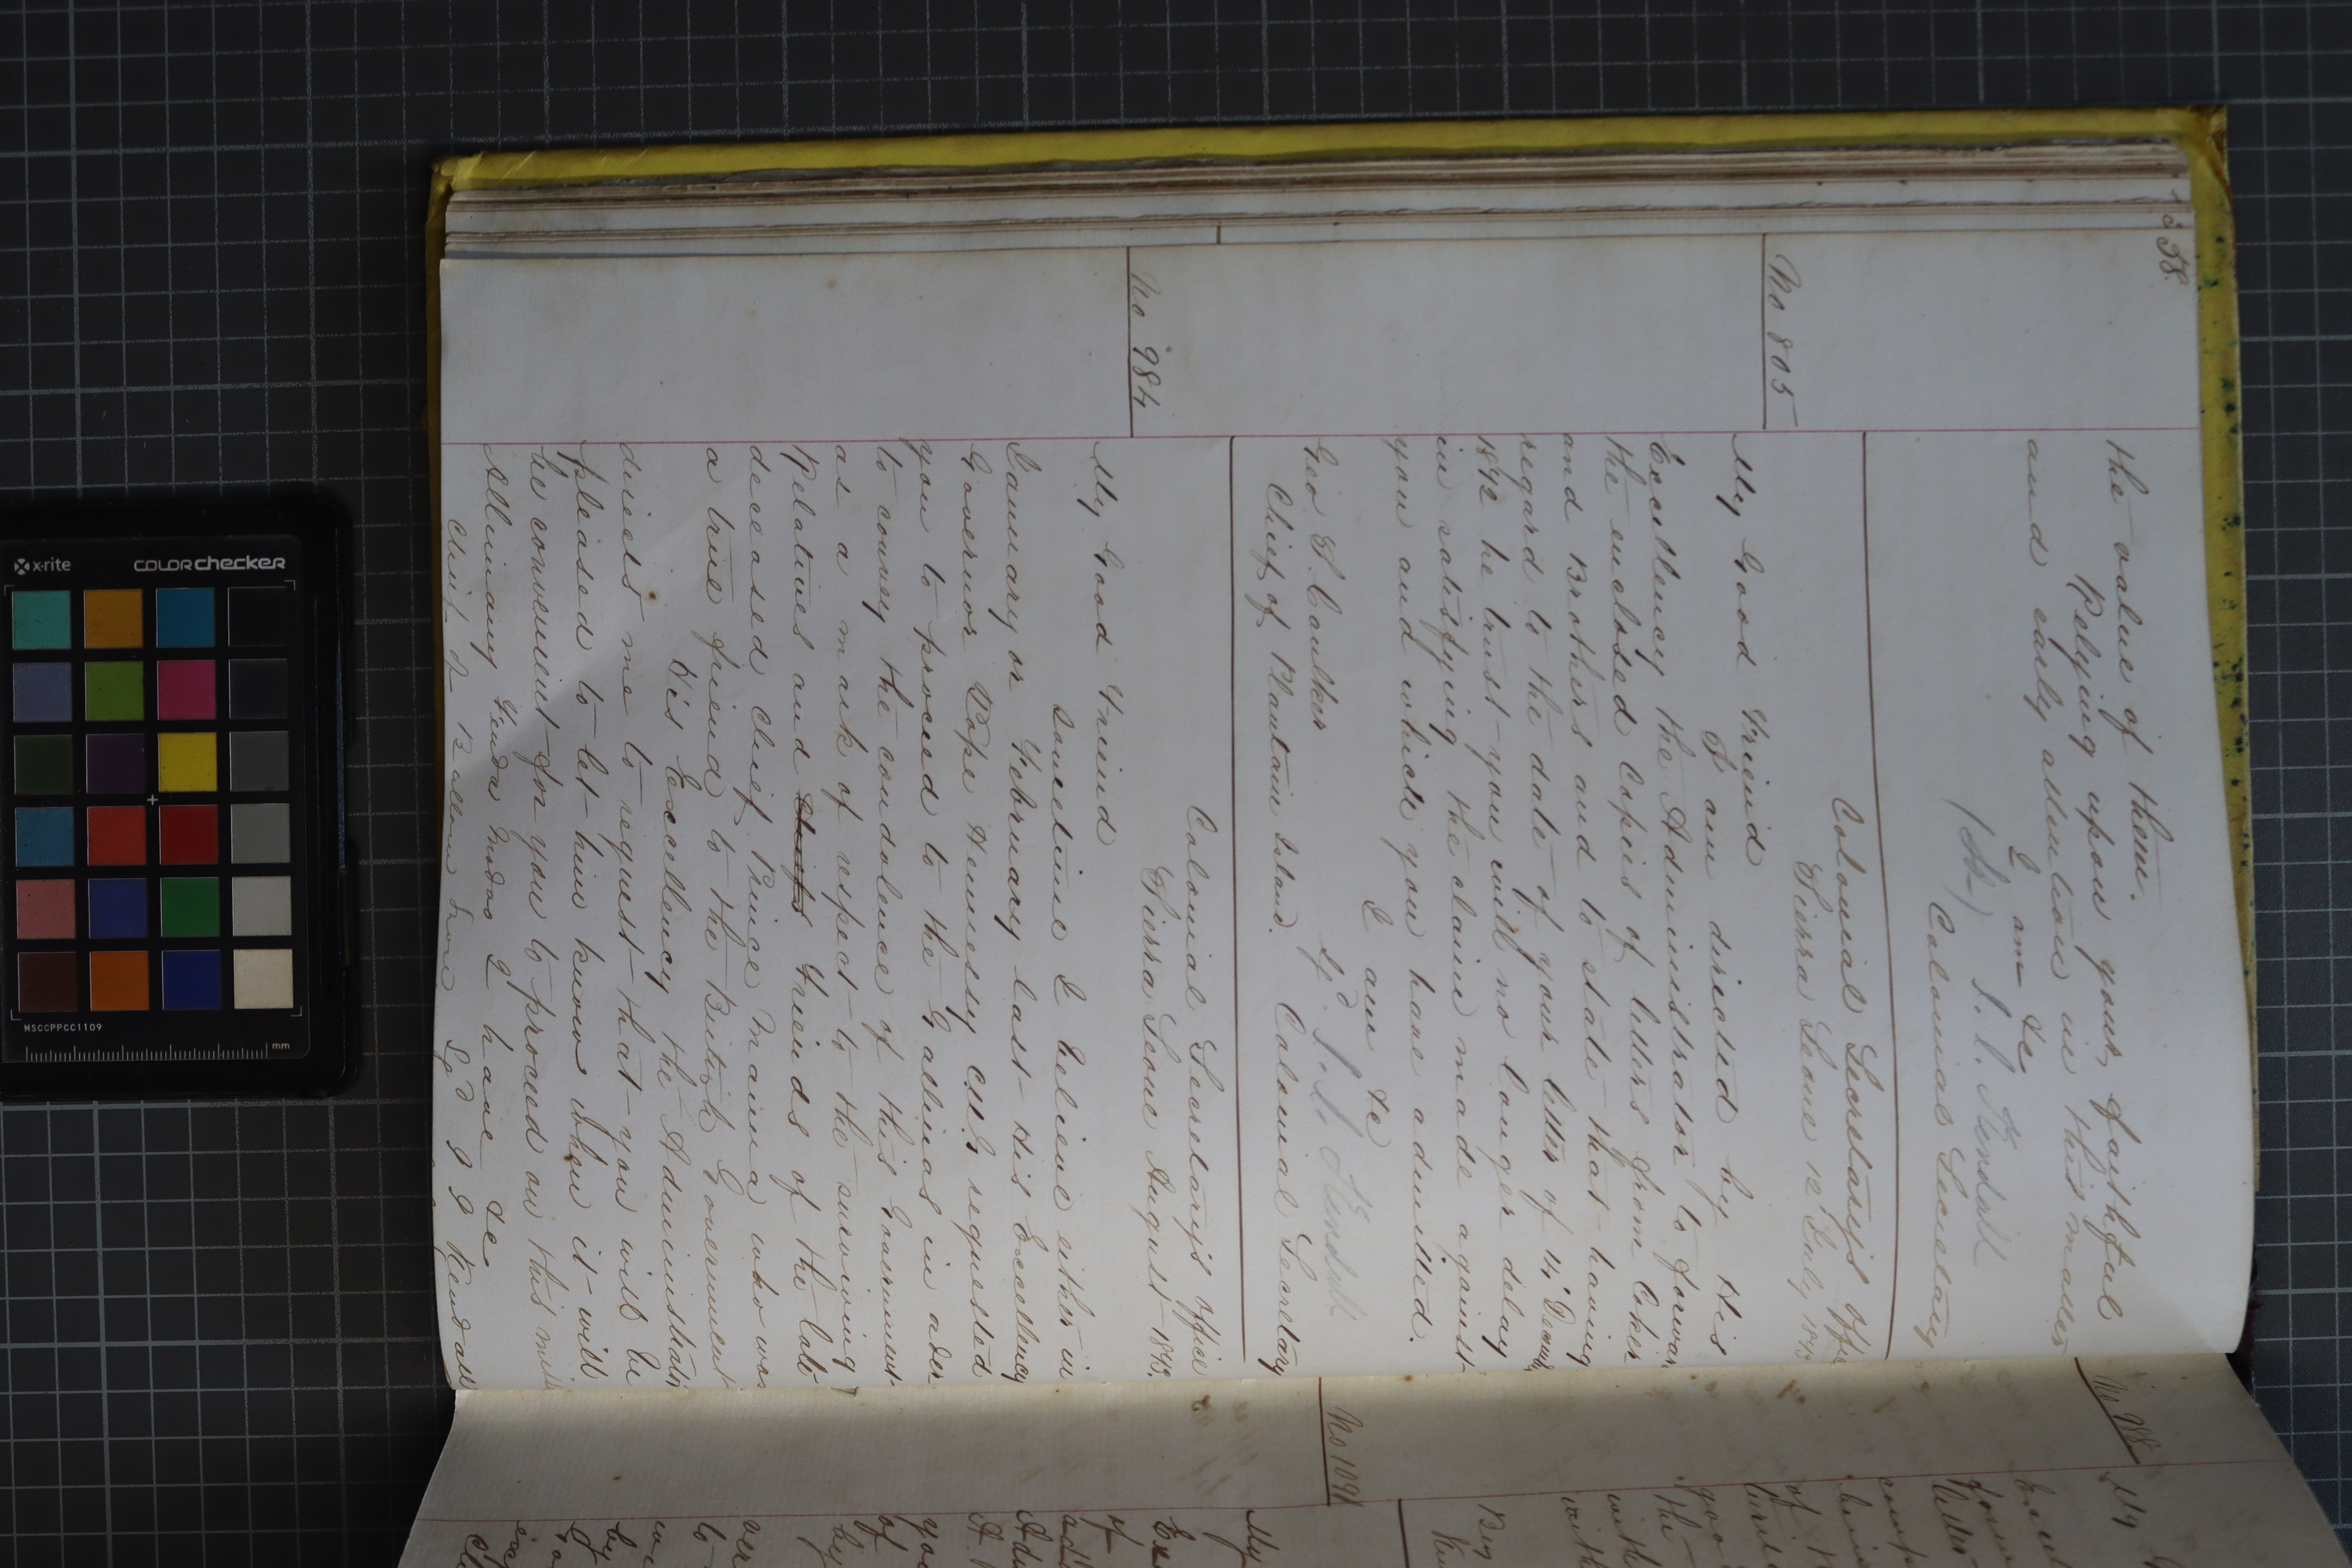 338
the value of them.
Relying upon your faithful
and early attention in this matter
I am &c
(Sd) J. J. Kendall
Colonial Secretary
Colonial Secretary's Offi
Sierra Leone 12 July 1873
No 805
My Good Friend
I am directed by His
Excellency the Administrator to forward
the enclosed Copies of letters from Coker
and Brothers and to state that having
regard to the date of your letter of 11 Decemb
1872 he trust you will no longer delay
in satisfying the claim made against
you and which you have admitted.
I am &c
Sgd J. J. Kendall
Geo. S. Caulker
Colonial Secretary
Chief of Plantain Island.
Colonial Secretary's Office
Sierra Leone August 1873.
No 984
My Good Friend
Sometime I believe either in
January or February last His Excellency
Governor Pope Hennessy C.M.G requested
you to proceed to the Gallinas in order
to convey the condolence of this Government
as a mark of respect to the surviving
Relatives and Chiefs Friends of the late
deceased Chief Prince Manna who was
a true friend to the British Government
His Excellency the Administrato
directs me to request that you will be
pleased to let him know when it will
be convenient for you to proceed on this miss
Allimany Fenda Modoo I have &c
Chief of Bullom Shore Sgd J J Kendall
No 988
My
No 1091
My
Ex
of
add
Adm
A
you
of
by
ver
to
we
by